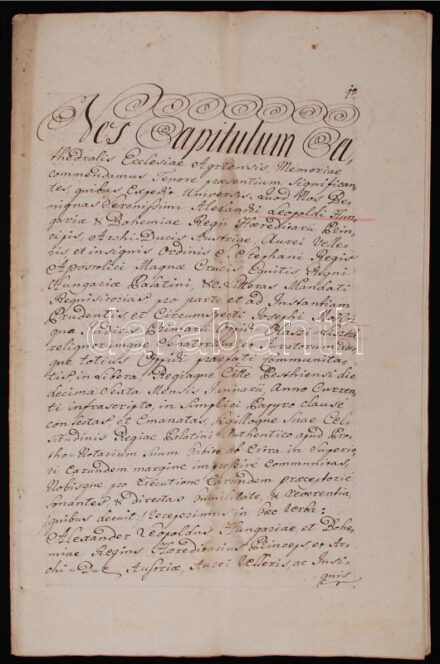 1º
Nos Capitulum Ca,
thedralis Ecclesiae Agriensis, Memoriae
commendamus Tenore praesentium significan,
tes, quibus Expedit Universis. Quod Nos Be,
nignas Serenissimi Alexandri Leopoldi Hun,
gariae & Bohemiae Regii Hereditarii Prin,
cipis, Archi Ducis Austriae, Aurei Velle,
ris et insignis Ordinis S. Stephani Regis
Apostolici Magnae Crucis Equitis Regni
Hungariae Palatini, &c. Litteras Mandati
Regni pro parte et ad Instantiam
Prudentis et Circumspecti Josephi
qua Judicis Primarii Oppidi
reliquorumque Senatorum et Juratorum
que totius Oppidi praefati Communita,
tis, in Libera Regiaque Ctte Pesthiensi die
decima Sexta Mensis Januarii Anno Curren,
ti infrascripto, in Simplici Papyro clause
confectas et Emanatas, Sigilloque Suae Cel,
situdinis Regiae Palatini Authentico apud Pro,
tho-Notarium Suum habito ab Extra in Superio,
ri Earundem margine impressive Communitas,
Nobisque pro Executione Earundem praeceptorie
sonantes & directas humilitate, & Reverentia,
quibus decuit / Recepimus in haec Verba:
Alexander Leopoldus Hungariae et Bohe,
miae Regius Haereditarius Princeps, et Ar,
chi-Dux Austriae, Aurei Velleris, ac Insi,
gnis
darabanth